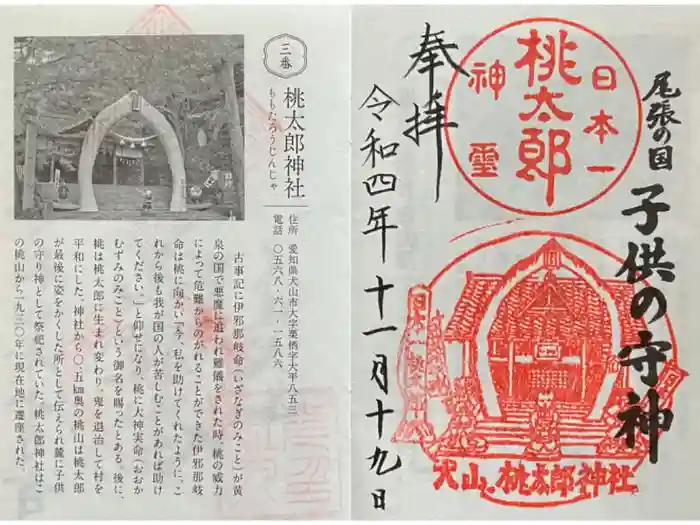 三番
桃太郎神社
ももたろうじんじゃ
住所 愛知県犬山市大字栗栖字大平八五三
電話 〇五六八・六一・一五八六
古事記に伊邪那岐命(いざなぎのみこと)が黄
泉の国で悪魔に追われ難儀をされた時、桃の威力
によって危難からのがれることができた伊邪那岐
命は桃に向かい「今、私を助けてくれたように、こ
れから後も我が国の人が苦しむことがあれば助け
てください。」と仰せになり、桃に大神実命(おおか
むずみのみこと)という御名を賜ったとある。後に、
桃は桃太郎に生まれ変わり、鬼を退治して村を
平和にした。神社から〇.五㎞奥の桃山は桃太郎
が最後に姿をかくした所として伝えられ麓に子供
の守り神として祭祀されていた。桃太郎神社はこ
の桃山から一九三〇年に現在地に遷座された。
尾張の国 子供の守神
日本一
桃太郎
神霊
奉拝
令和四年十一月十九日
犬山 桃太郎神社